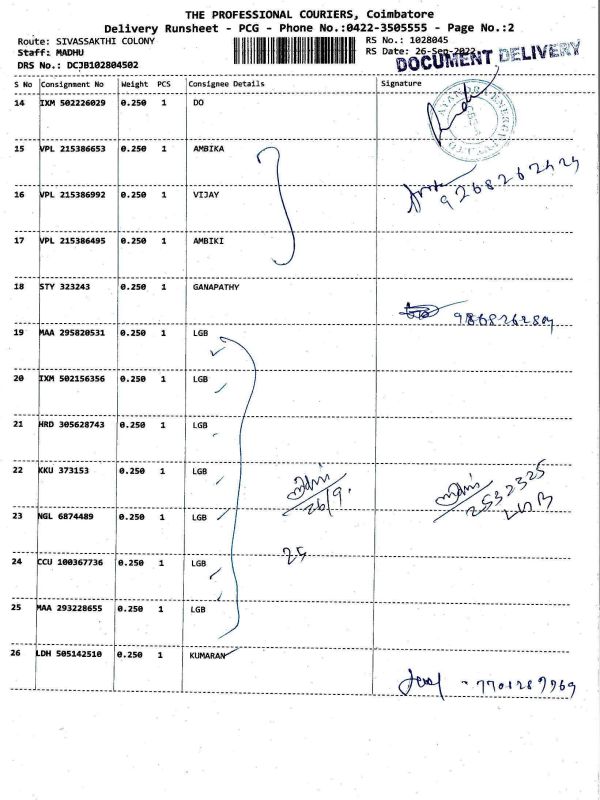 THE PROFESSIONAL COURIERS, Coimbatore
Delivery Runsheet - PCG - Phone No.:0422-3505555 - Page No.:2
Route: SIVASSAKTHI COLONY RS No.: 1028045
Staff: MADHU RS Date: 26-Sep-2022
DOCUMENT DELIVERY
DRS No.: DCJB102804502
S No Consignment No Weight PCS Consignee Details Signature
14 IXM 502226029 0.250 1 DO
15 VPL 215386653 0.250 1 AMBIKA
16 VPL 215386992 0.250 1 VIJAY
9268262424
17 VPL 215386495 0.250 1 AMBIKI
18 STY 323243 0.250 1 GANAPATHY
19 MAA 295820531 0.250 1 LGB
20 IXM 502156356 0.250 1 LGB
21 HRD 305628743 0.250 1 LGB
22 KKU 373153 0.250 1 LGB
26/9.
2532325
23 NGL 6874489 0.250 1 LGB
24 CCU 100367736 0.250 1 LGB
25
25 MAA 293228655 0.250 1 LGB
26 LDH 505142510 0.250 1 KUMARAN